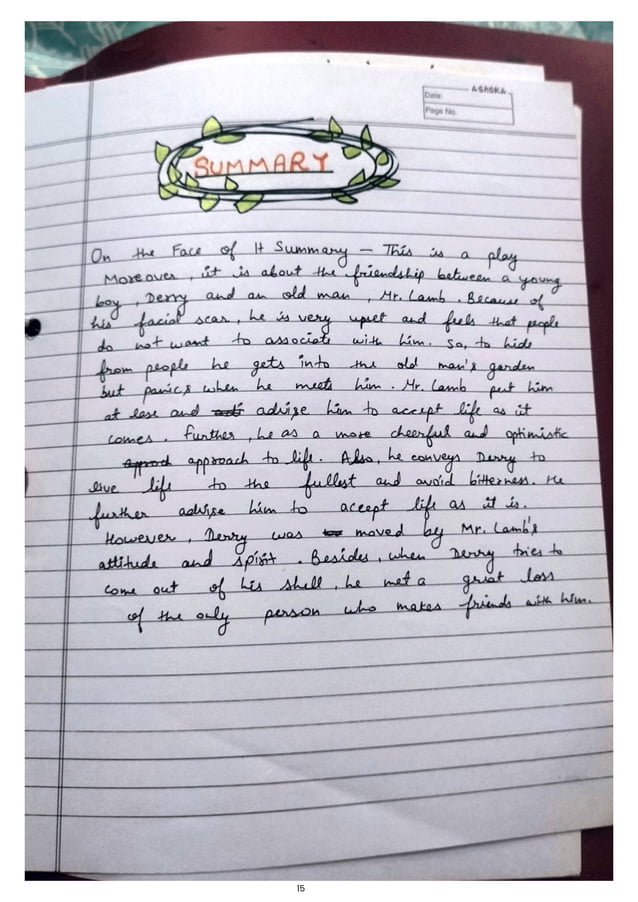 ASHOKA
Date:
Page No.
SUMMARY
On the Face of It Summary — This is a play
Moreover, it is about the friendship between a young
boy, Derry and an old man, Mr. Lamb. Because of
his facial scar, he is very upset and feels that people
do not want to associate with him. So, to hide
from people he gets into the old man's garden
but panics when he meets him. Mr. Lamb put him
at ease and advise him to accept life as it
comes. Further, he as a more cheerful and optimistic
approach to life. Also, he conveys Derry to
live life to the fullest and avoid bitterness. He
further advise him to accept life as it is.
However, Derry was moved by Mr. Lamb's
attitude and spirit. Besides, when Derry tries to
come out of his shell, he met a great loss
of the only person who makes friends with him.
15